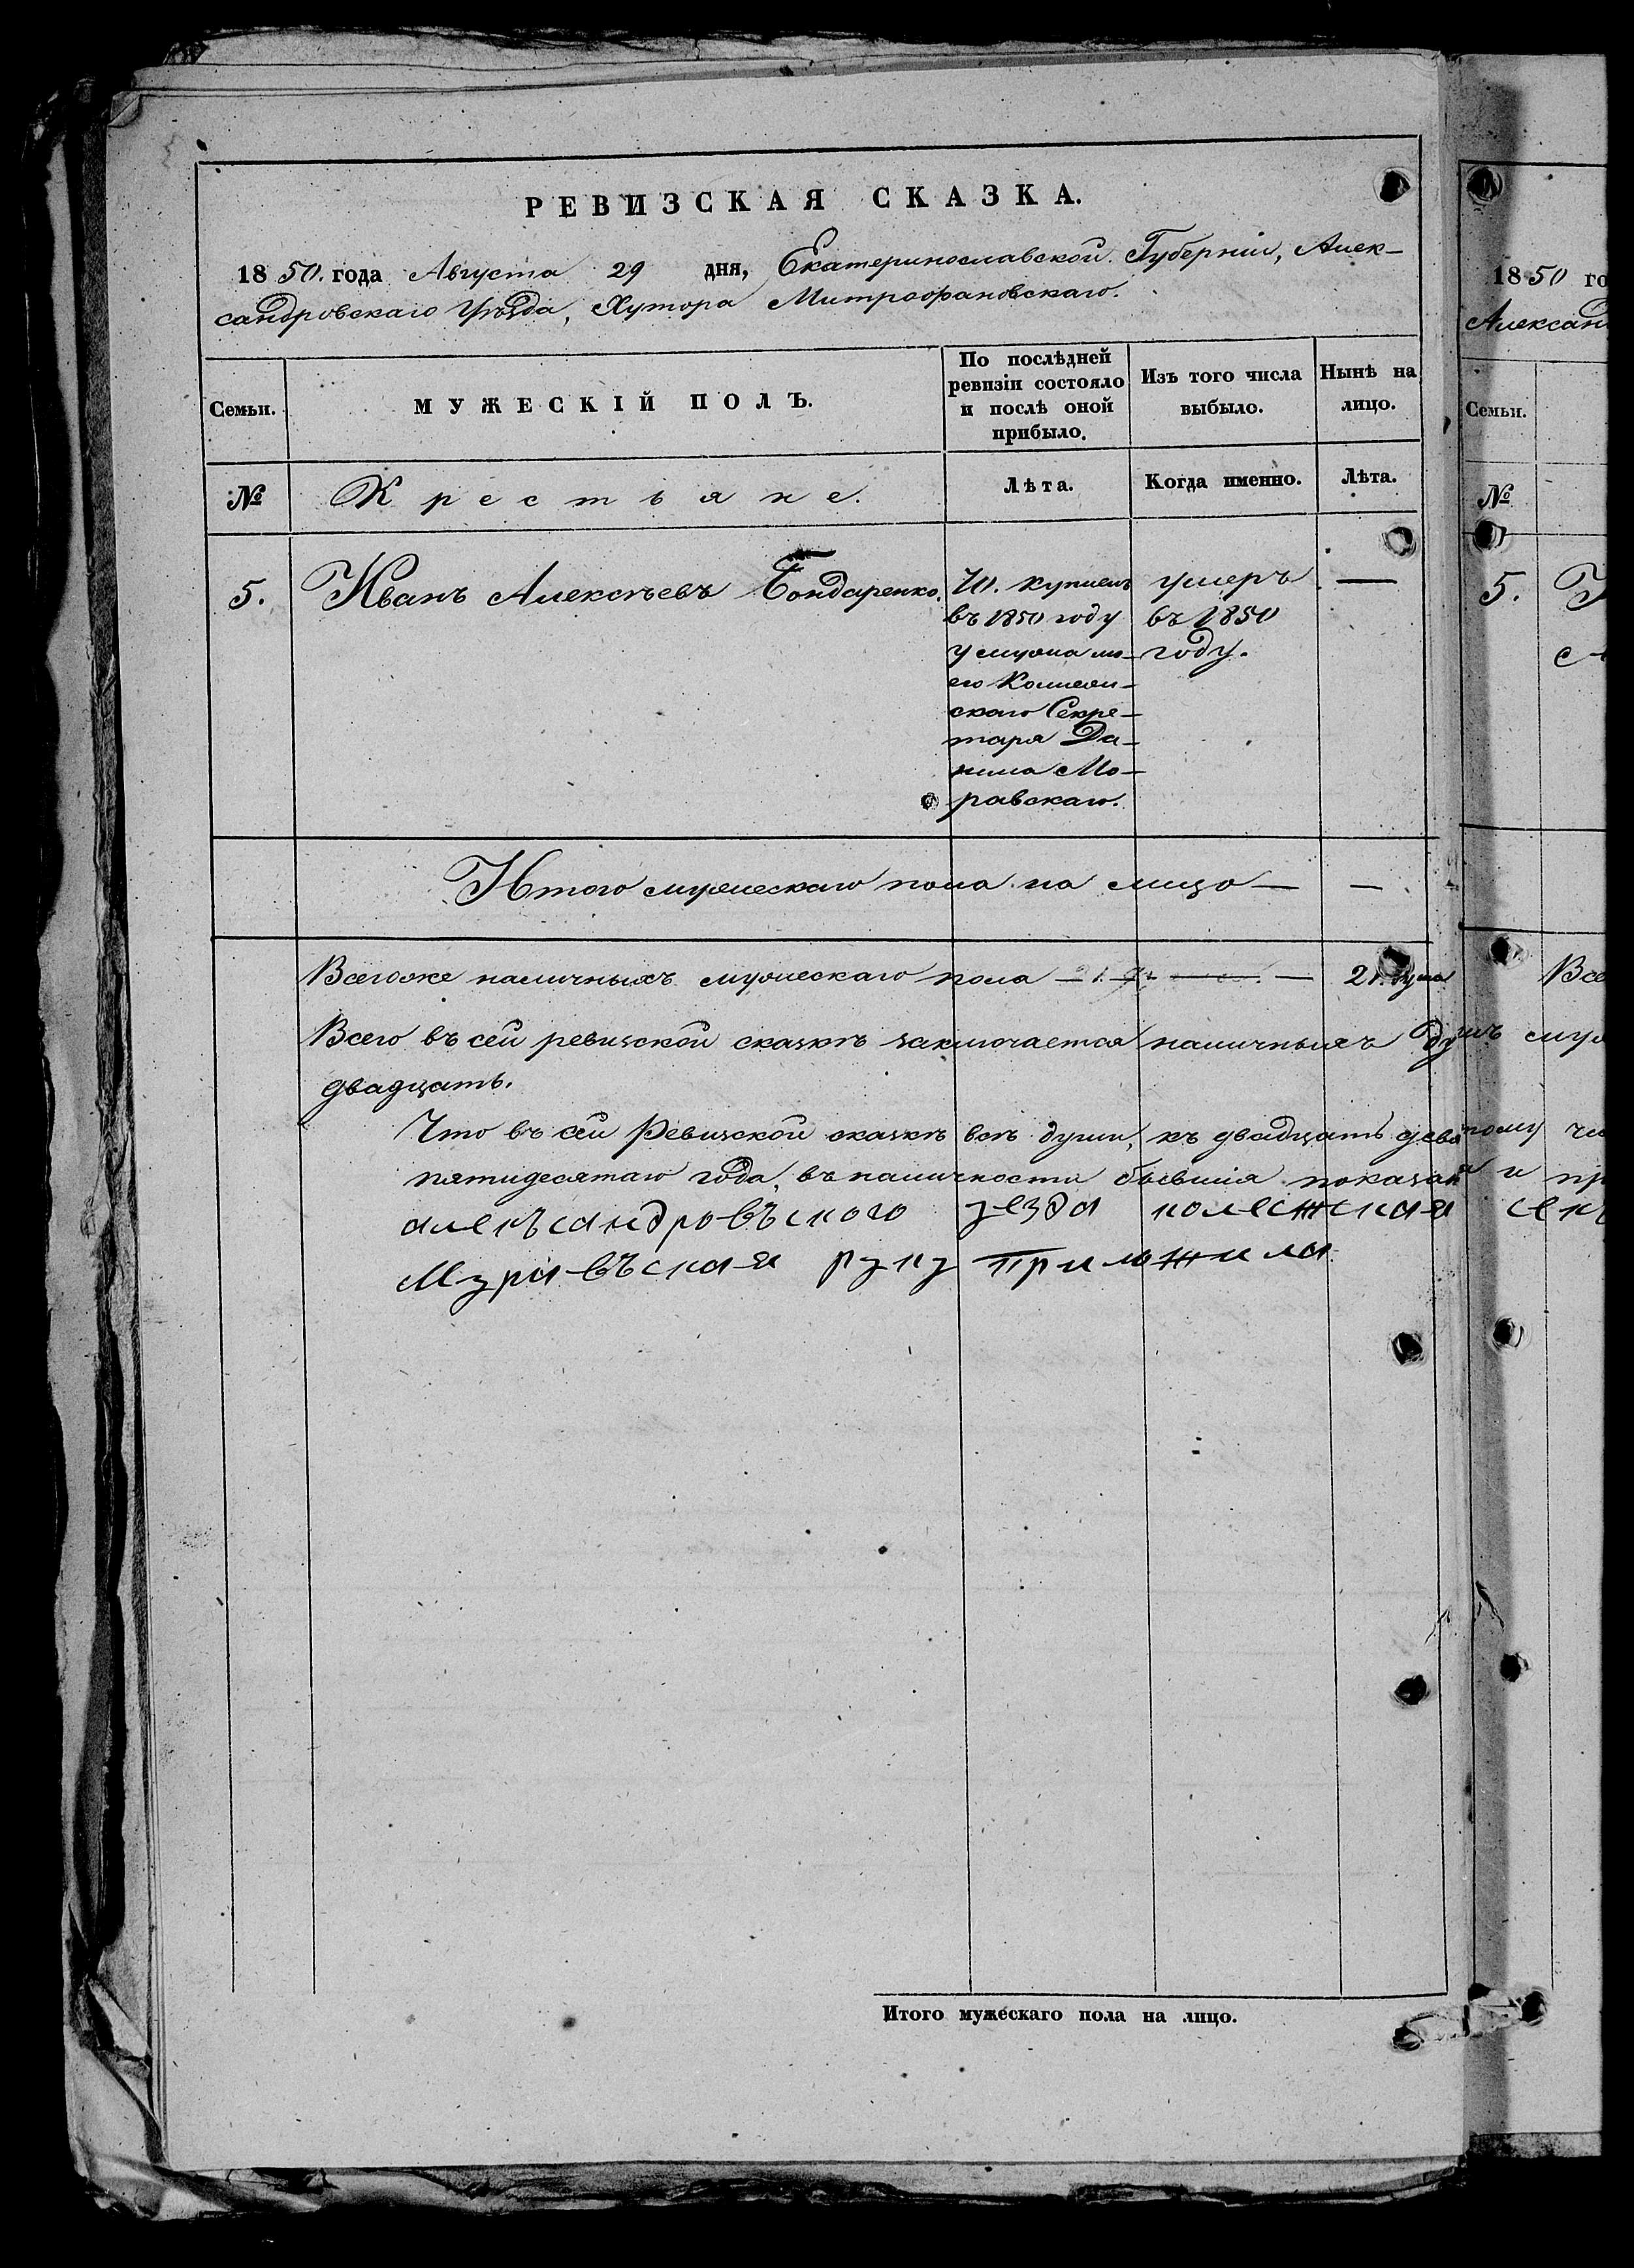 РЕВИЗСКАЯ СКАЗКА.
1850. года Августа 29 дня, Екатеринославской Губерніи, Алек-
сандровскаго Уѣзда, Хутора Митрофановскаго.
Семьи.
МУЖЕСКІЙ ПОЛЪ.
По послѣдней
ревизіи состояло
и послѣ оной
прибыло.
Изъ того числа
выбыло.
Нынѣ на
лицо.
№
Крестьяне.
Лѣта.
Когда именно.
Лѣта.
5.
Иванъ Алексѣевъ Бондаренко.
купленъ
въ 1850 году
у мужа мо-
его Коллеж-
скаго Секре-
таря Да-
нила Мо-
равскаго.
умеръ
въ 1850
году.
—
Итого мужескаго пола на лицо — —
Всегоже наличныхъ мужескаго пола — 21. душа
Всего въ сей ревизской сказкѣ заключается наличныхъ душъ муж
двадцать.
Что въ сей Ревизской сказкѣ всѣ души, къ двадцать девятому чи
пятидесятаго года, въ наличности бывшія показаны и пр
алекъсандровъского уезда колежская секъ
Муравъская руку приложила
Итого мужескаго пола на лицо.
1850 го
Алексан
Семьи.
№
5.
Все